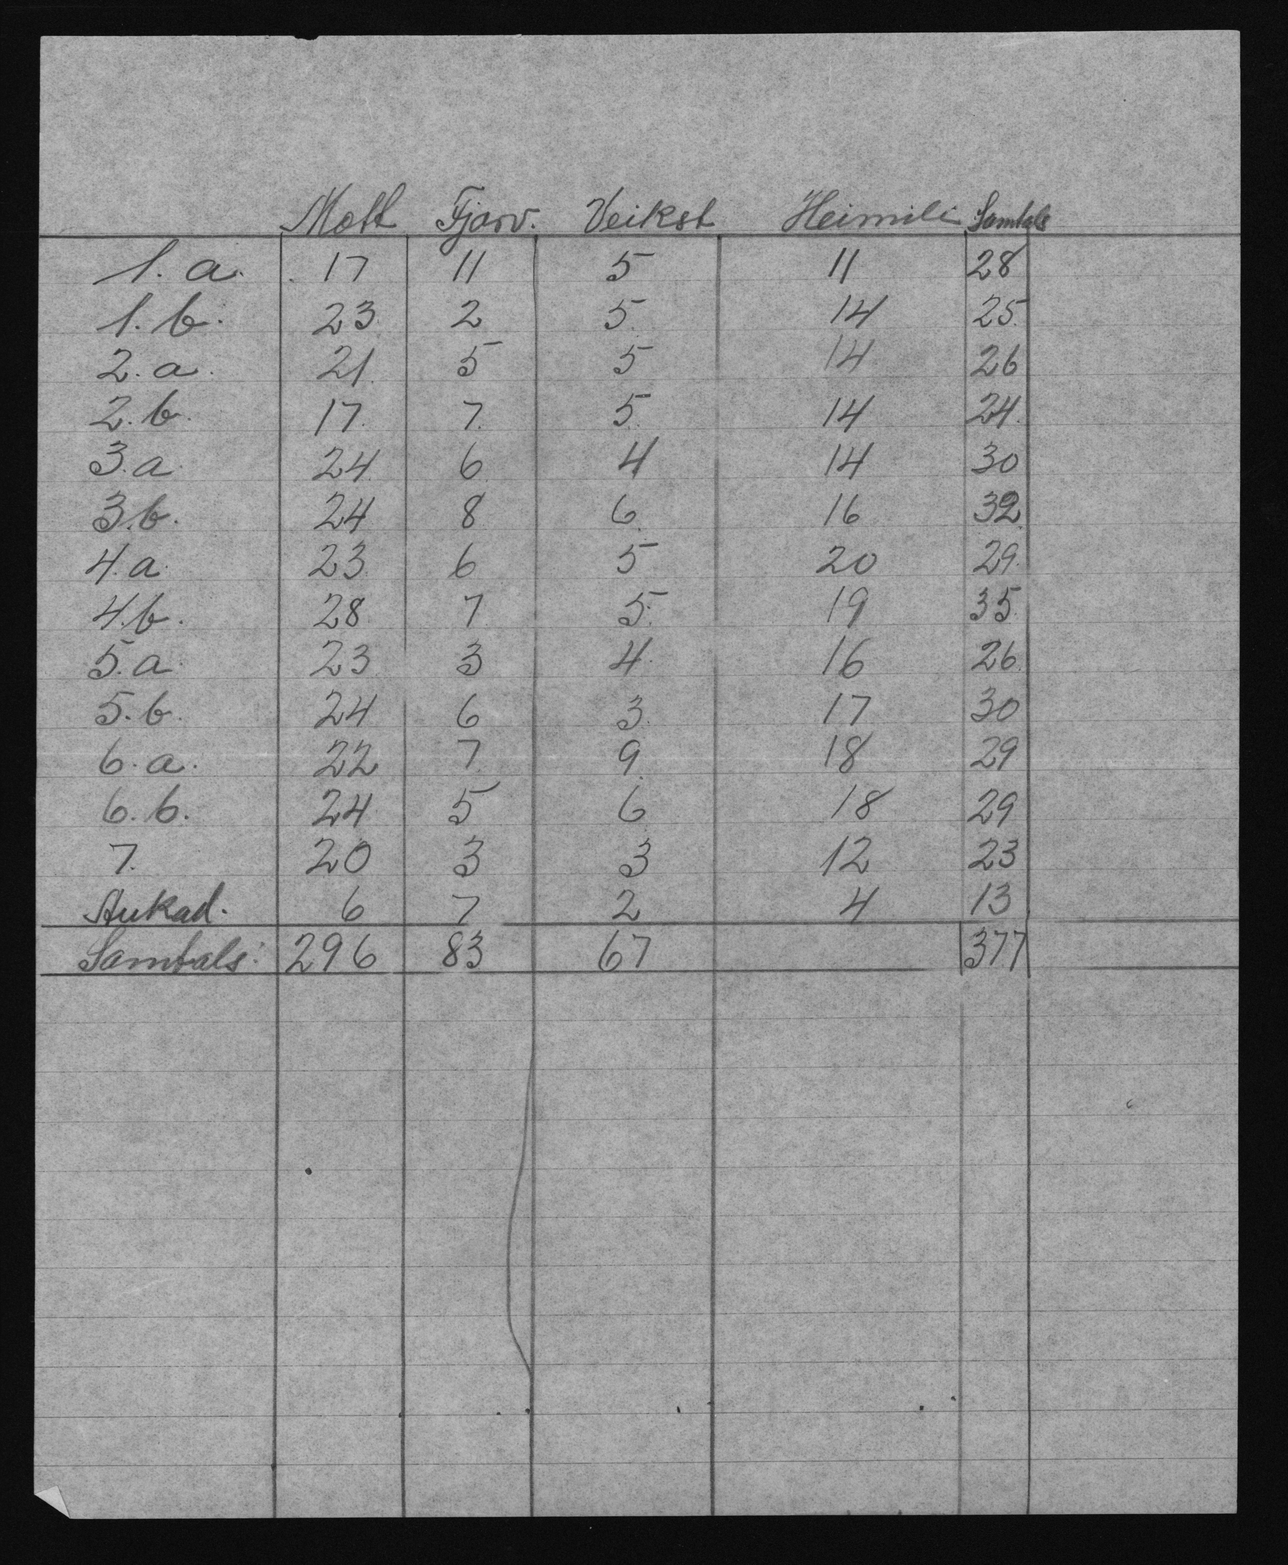 Mætt Fjarv. Veikst Heimili Samtals
1. a. 17 11 5 11 28
1. b. 23 2 5 14 25
2. a. 21 5 5 14 26
2. b. 17 7 5 14 24
3. a. 24 6 4 14 30
3. b. 24 8 6 16 32
4. a. 23 6 5 20 29
4. b. 28 7 5 19 35
5. a. 23 3 4 16 26
5. b. 24 6 3 17 30
6. a. 22 7 9 18 29
6. b. 24 5 6 18 29
7. 20 3 3 12 23
Aukad. 6 7 2 4 13
Samtals: 296 83 67 377